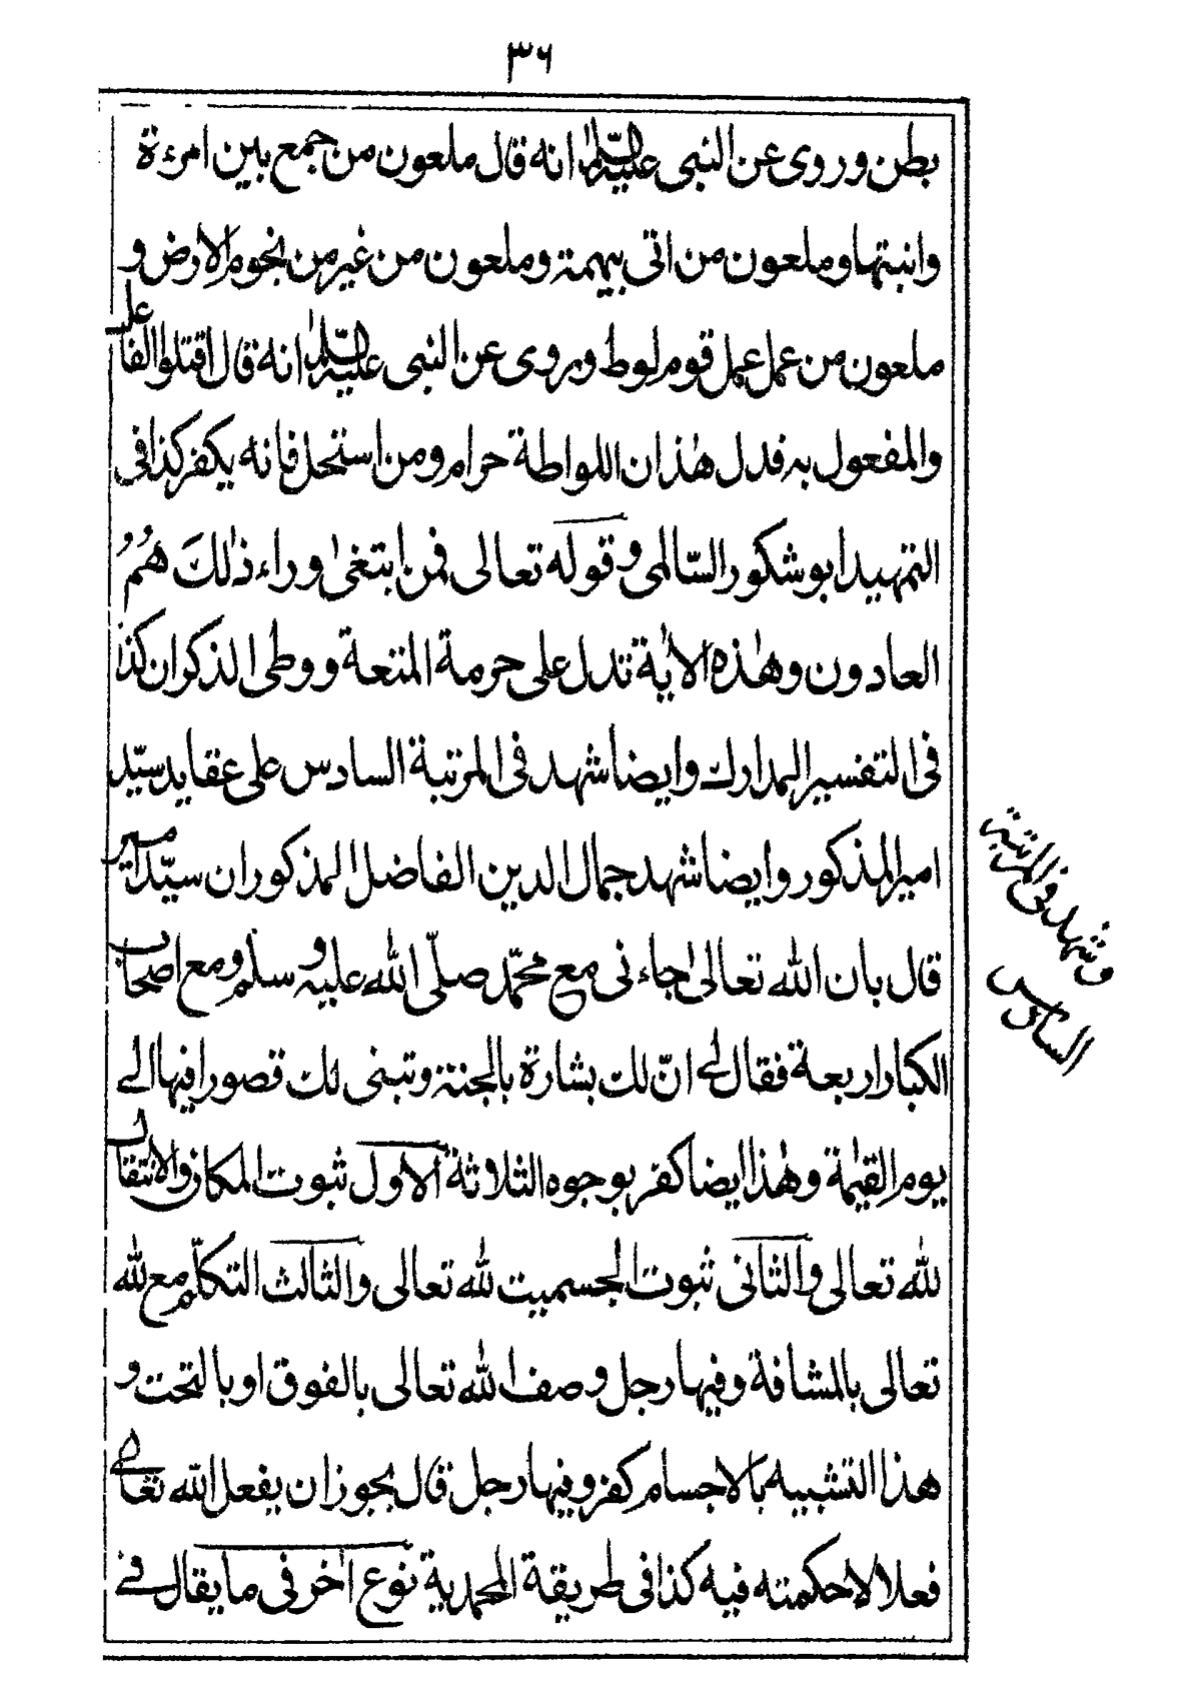 ٣٦
بطن وروى عن النبى عليه السّلام انه قال ملعون من جمع بين امرءة
وابنتها وملعون من اتى بهيمة وملعون من غير من نجوم الارض و
ملعون من عمل عمل قوم لوط وبروى عن النبى عليه السّلام انه قال اقتلوا الفاعل
والمفعول به فدل هٰذا ان اللواطة حرام ومن استحل فانه يكفر كذا فى
التمهيد ابو شكور السّالمى وقوله تعالى فمن ابتغىٰ وراء ذٰلكَ هُمُ
العادون وهٰذه الاٰية تدل على حرمة المتعة ووطى الذكران كذا
فى التفسير المدارك وايضا شهد فى المرتبة السادس على عقايد سيّد
امير المذكور وايضا شهد جمال الدين الفاضل المذكور ان سيّد امير
قال بان الله تعالىٰ جاءنى مع محمّد صلّى الله عليه وسلم ومع اصحاب
الكبار اربعة فقال لى انّ لك بشارة بالجنة وتبنى لك قصورا فيها الى
يوم القيٰمة وهٰذا ايضا كفر بوجوه الثلاثة الاول ثبوت المكان والانتقال
لله تعالى والثانى ثبوت الجسميت لله تعالى والثالث التكلّم مع لله
تعالى بالمشافة وفيها رجل وصف الله تعالى بالفوق او بالتحت و
هذا التشبيه بالاجسام كفر وفيها رجل قال يجوز ان يفعل الله تعالى
فعلا لا حكمته فيه كذا فى طريقة المحمدية نوع اٰخر فى ما يقال فى
وشهد فى المرتبة
السادس